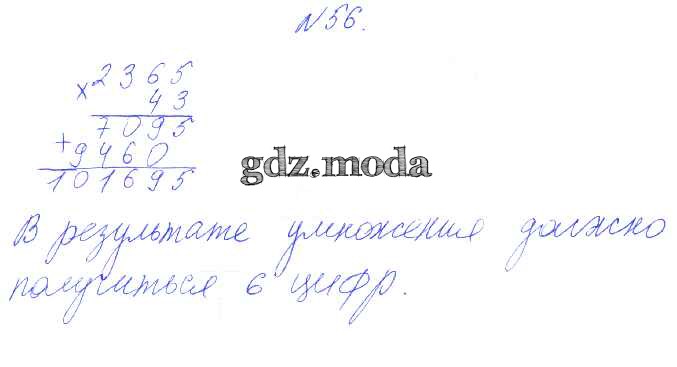 N 56.
2365
× 43
7095
+ 9460
101695
gdz.moda
В результате умножения должно
получиться 6 цифр.